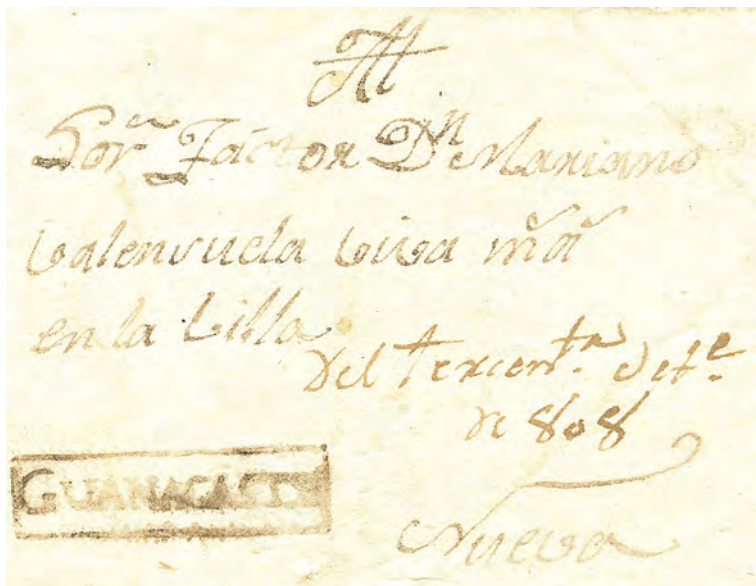 Al
Sor. Factor Dn. Mariano
Valensuela viva ms. as.
en la Villa
del
de 808
GUANACAST
Nueva